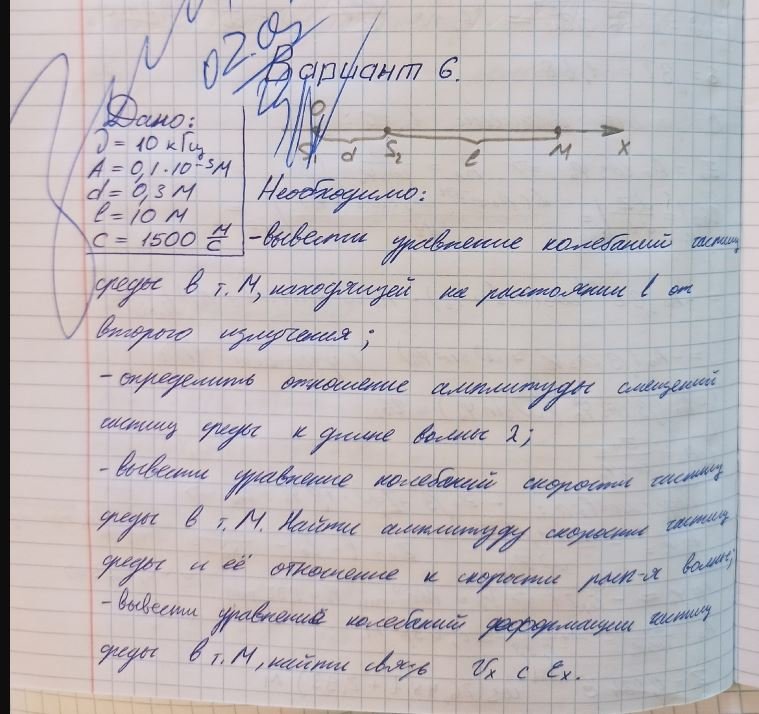 02.03
Вариант 6.
Дано:
ν = 10 кГц
A = 0,1·10⁻³ м
d = 0,3 м
l = 10 м
c = 1500 м/с
O
S₁ d S₂ l M X
Необходимо:
- вывести уравнение колебаний частиц
среды в т. М, находящей на расстоянии l от
второго излучения;
- определить отношение амплитуды смещений
частиц среды к длине волны λ;
- вывести уравнение колебаний скорости частиц
среды в т. М. Найти амплитуду скорости частиц
среды и её отношение к скорости расп-я волны;
- вывести уравнений колебаний деформации частиц
среды в т. М, найти связь Vₓ с Ɛₓ.